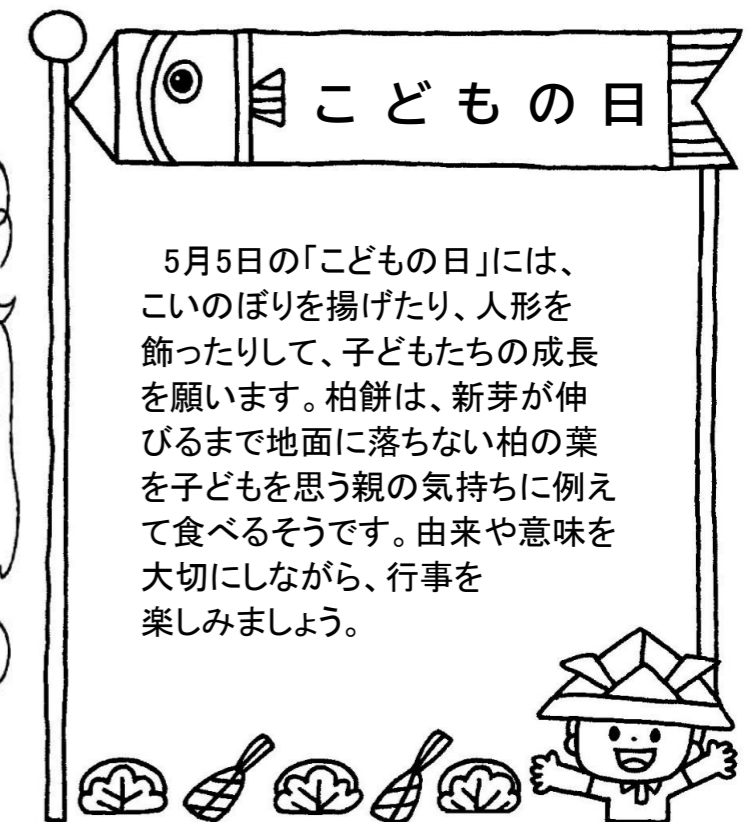 こどもの日
5月5日の「こどもの日」には、
こいのぼりを揚げたり、人形を
飾ったりして、子どもたちの成長
を願います。柏餅は、新芽が伸
びるまで地面に落ちない柏の葉
を子どもを思う親の気持ちに例え
て食べるそうです。由来や意味を
大切にしながら、行事を
楽しみましょう。